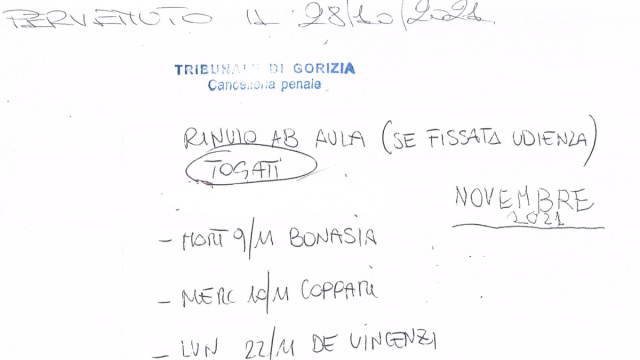 PERVENUTO IL 28/10/2021
TRIBUNALE DI GORIZIA
Cancelleria penale
RINVIO AB AULA (SE FISSATA UDIENZA)
TOGATI
NOVEMBRE
2021
- MART 9/11 BONASIA
- MERC 10/11 COPPARI
- LUN 22/11 DE VINCENZI